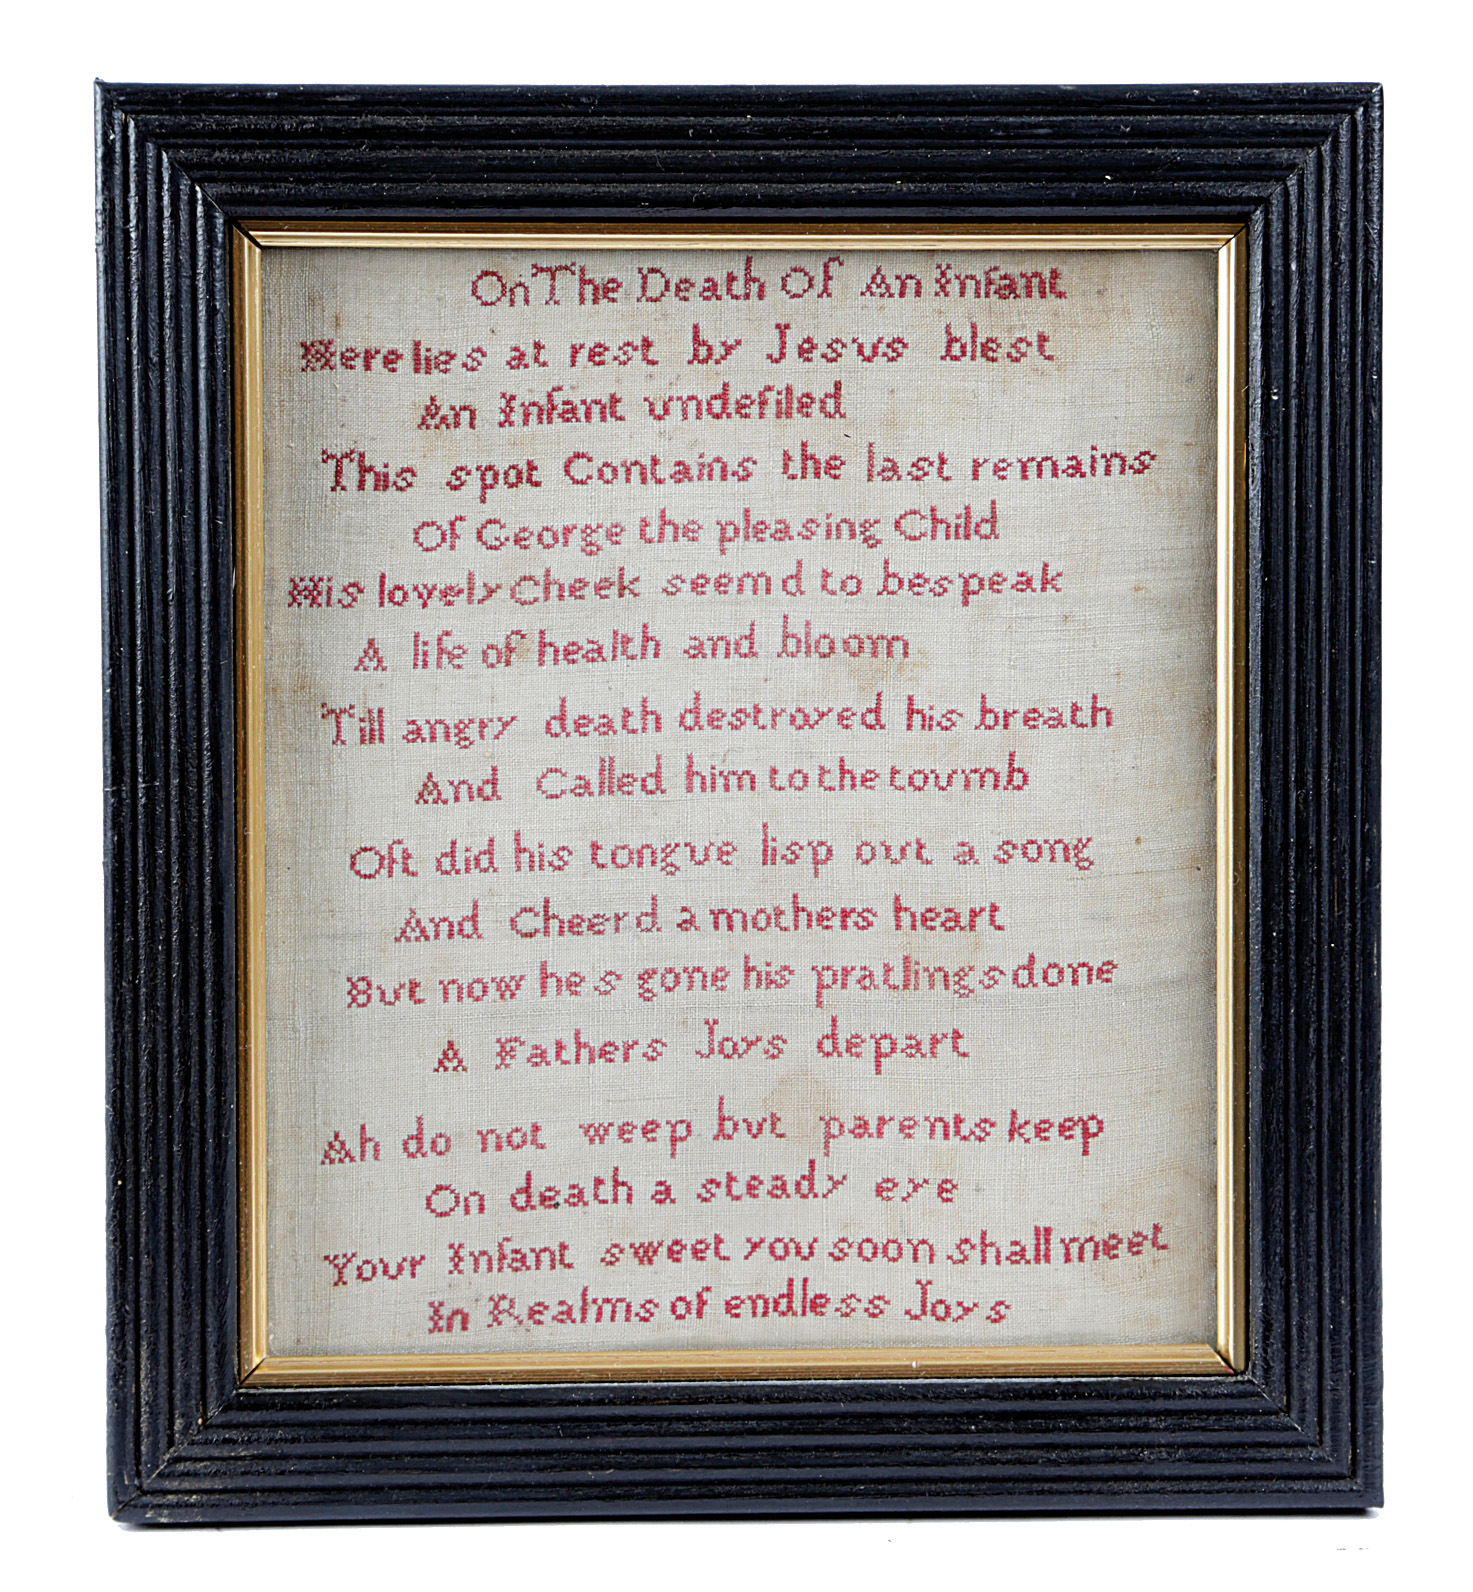 On The Death Of An Infant
Here lies at rest by Jesus blest
An Infant undefiled
This spot Contains the last remains
Of George the pleasing Child
His lovely Cheek seemd to bespeak
A life of health and bloom
Till angry death destroyed his breath
And Called him to the toumb
Oft did his tongue lisp out a song
And Cheerd a mothers heart
But now hes gone his pratlings done
A Fathers Joys depart
Ah do not weep but parents keep
On death a steady eye
Your Infant sweet you soon shall meet
In Realms of endless Joys